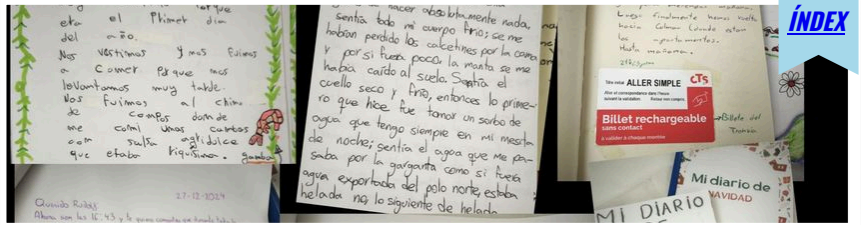 era el Primer dia
del año.
Nos vestimos y nos fuimos
a comer porque nos
levantamos muy tarde.
Nos fuimos al chino
de campos donde
me comí unas
con salsa agridulce
que etaba riquisima. gamba
Querido Rudolf
27-12-2024
Ahora son las 16:43 y te
hacer absolutamente nada,
sentía todo mi cuerpo frío; se me
habían perdido los calcetines por la cama
y por si fuera poco, la manta se me
había caído al suelo. Sentía el
cuello seco y frío, entonces lo prime-
ro que hice fue tomar un sorbo de
agua que tengo siempre en mi mesita
de noche; sentía el agua que me pa-
saba por la garganta como si fuera
agua exportada del polo norte, estaba
helada no, lo siguiente de helada
Luego finalmente hemos vuelto
hacia Colmar donde estan
los apartamentos.
Hasta mañana.
ALLER SIMPLE
CTS
Billet rechargeable
sans contact
à valider à chaque montée
Billete del
Tranvía
Mi diario de
NAVIDAD
MI DIARIO
DE
ÍNDEX